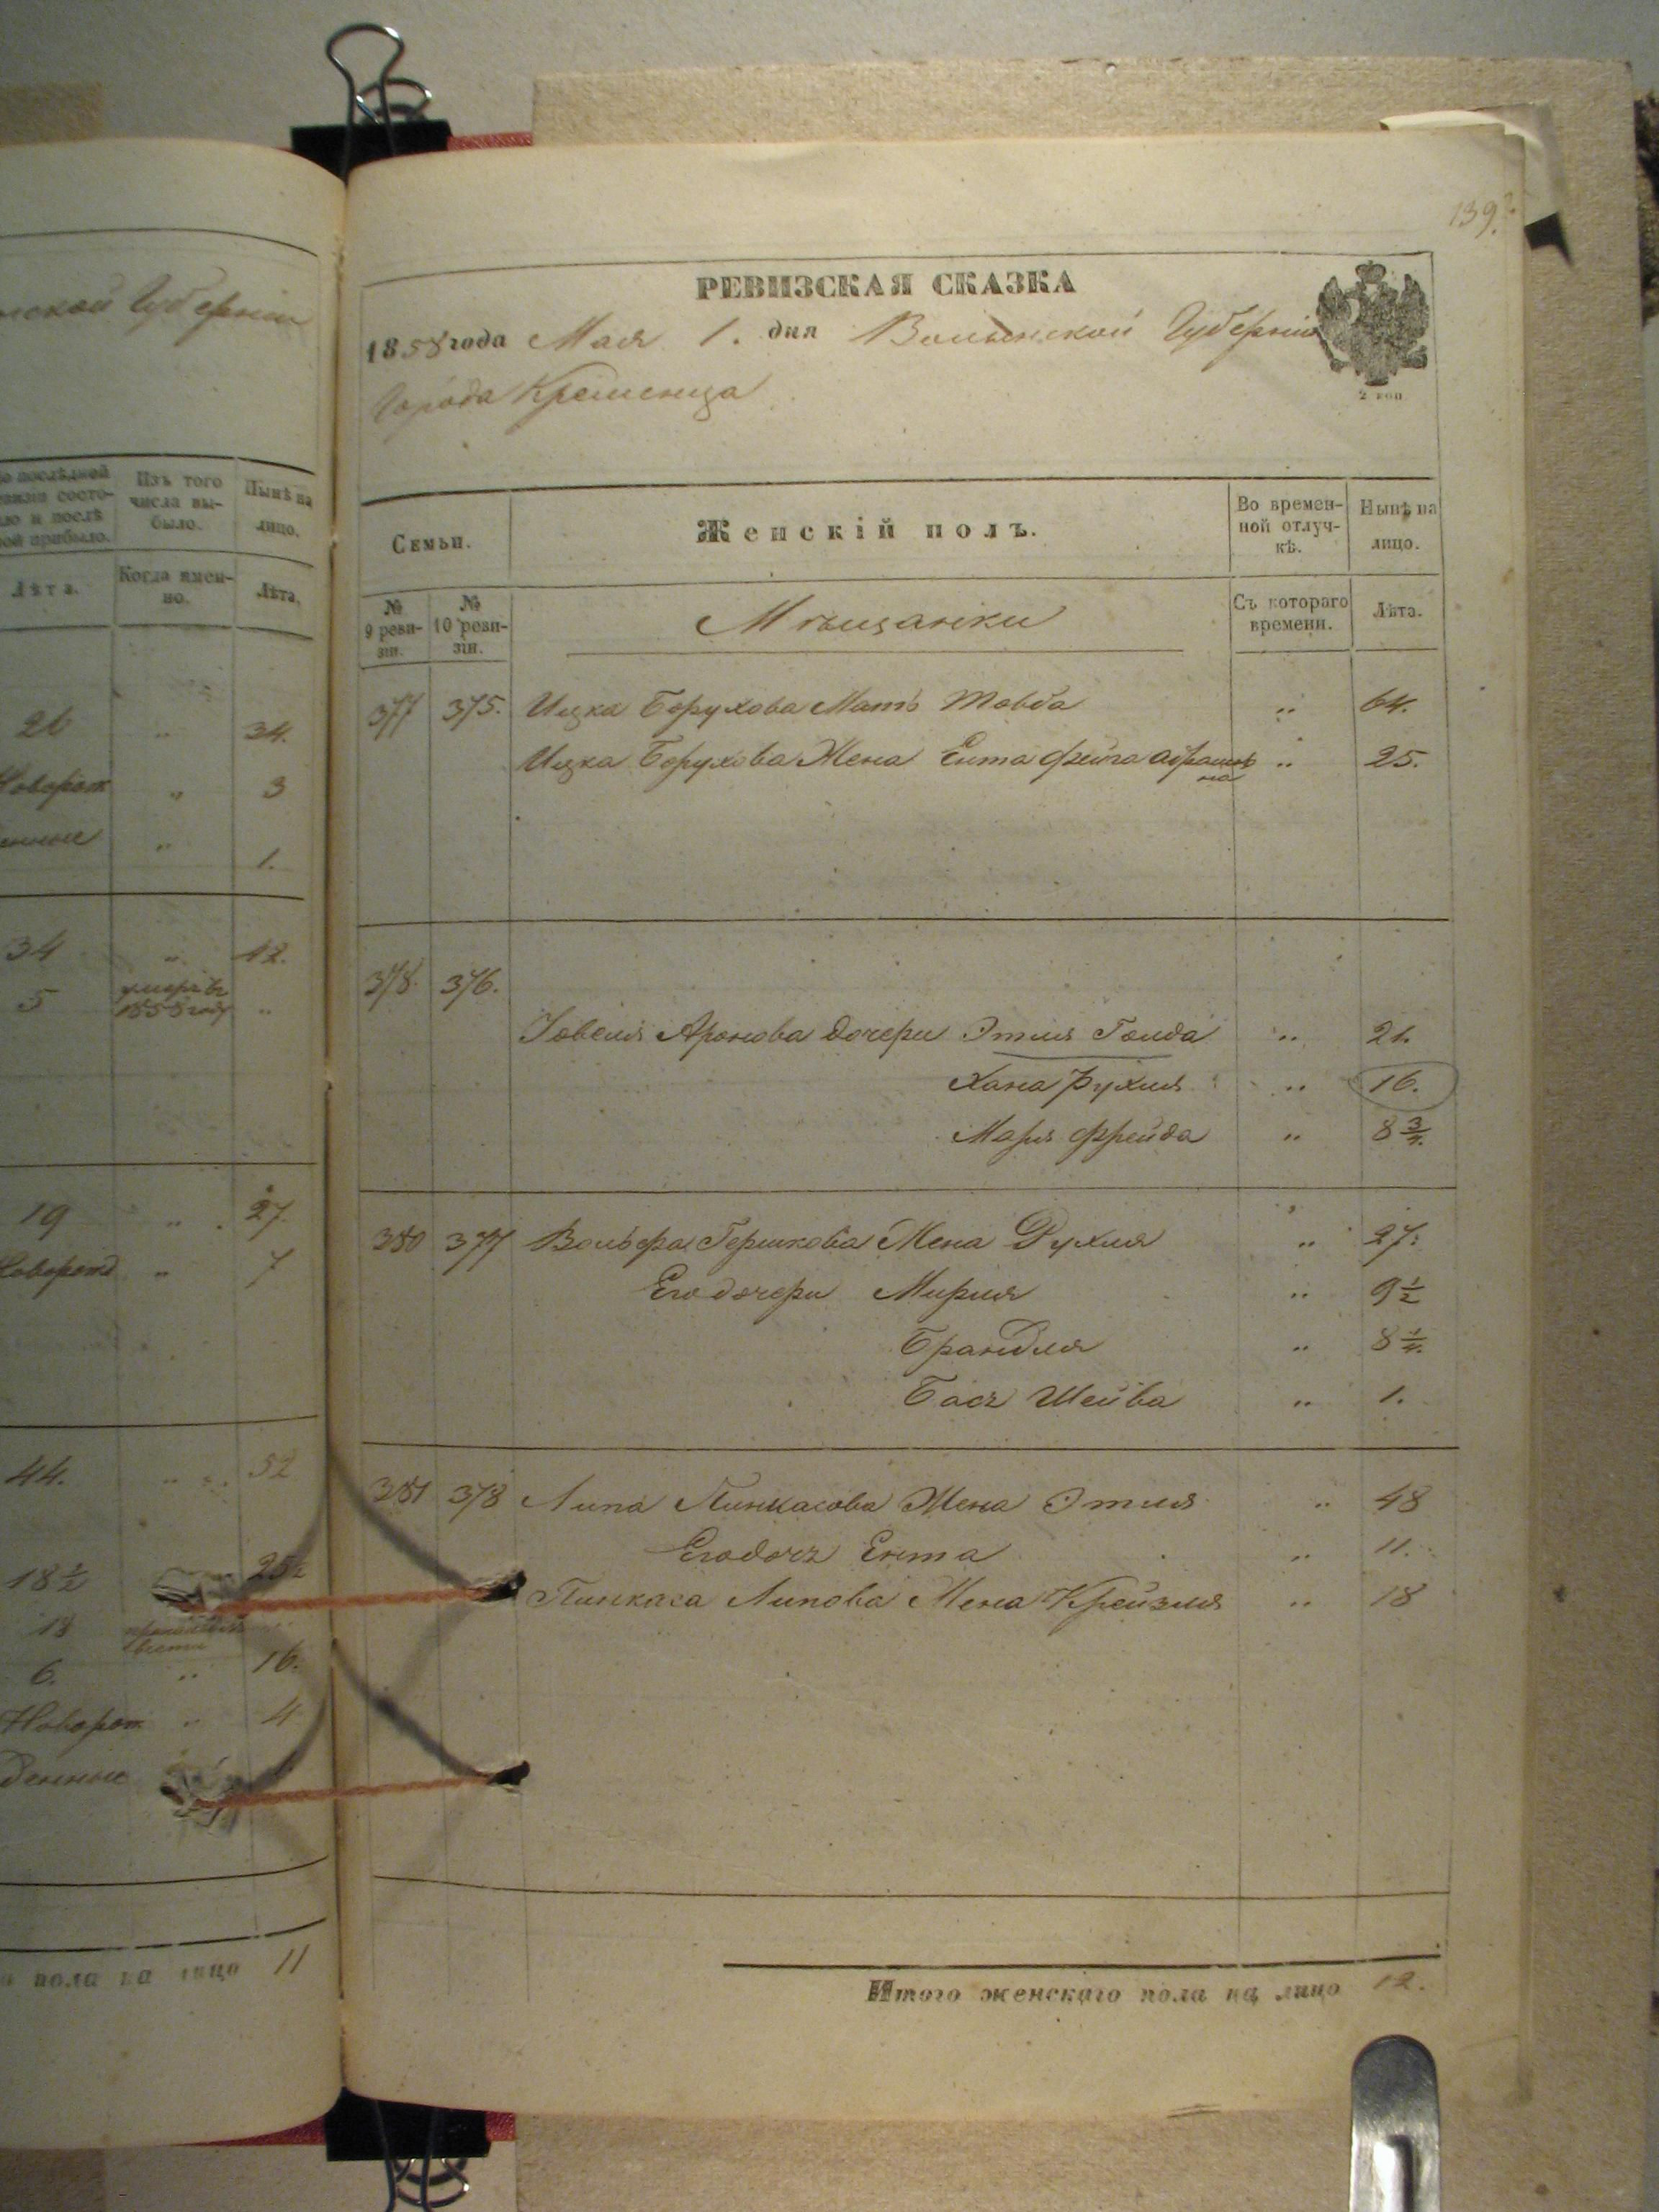 ской Губернiи
о послѣдней
Изъ того
числа вы-
было.
Нынѣ на
лицо.
ой прибыло.
Лѣта.
Когда имен-
но.
Лѣта.
26 „ 34.
Новорож „ 3
денные „ 1.
34 „ 42.
5 умеръ въ 1858 году „
19 „ 27.
Новорожд „ 7
44. „ 52
18½ 25½
18
6. „ 16.
Новорож „ 4
денные
пола на лицо 11
139.
РЕВИЗСКАЯ СКАЗКА
1858 года Мая 1. дня Волынской Губернiи
2 коп
Города Кременца
Семьи.
Женскiй полъ.
Во времен-
ной отлуч-
кѣ.
Нынѣ на
лицо.
№
9 реви-
зiи.
№
10 реви-
зiи.
Мѣщанки
Съ котораго
времени.
Лѣта.
377 375. Ицка Борухова Мать Товба „ 64.
Ицка Борухова Жена Ента Фейга Абрамов „ 25.
на
378. 376.
Іовеля Аронова дочери Этля Голда „ 21.
Хана Рухля „ 16.
Маря Фрейда „ 8¾.
380 377 Вольфа Гершкова Жена Рухля „ 27.
Его дочери Мириля „ 9½
Брандля „ 8¼.
Бася Шейва „ 1.
381 378 Липа Пинкасова Жена Этля „ 48
Его дочь Ента „ 11.
Пинкаса Липова Жена Крейзля „ 18
Итого женскаго пола на лицо 12.